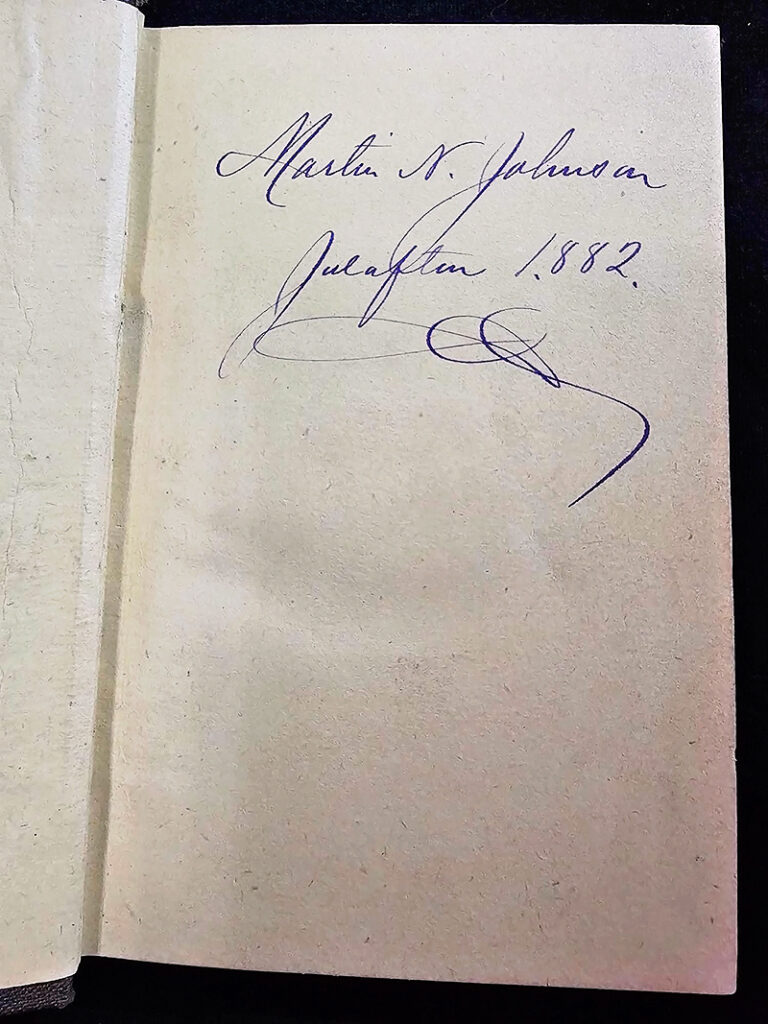 Martin N. Johnson
Juleaften 1882.